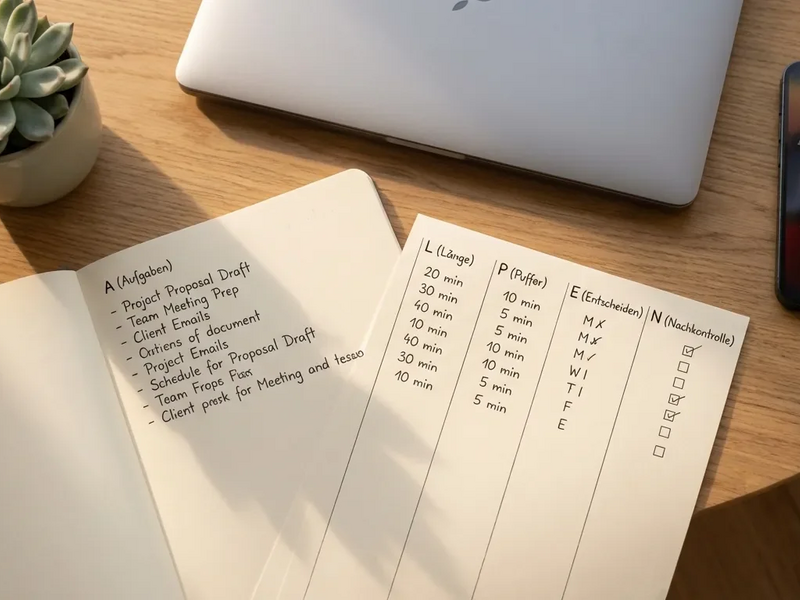 A (Aufgaben)
- Project Proposal Draft
- Team Meeting Prep
- Client Emails
- of document
- Project Emails
- Schedule for Proposal Draft
- Team
- Client for Meeting and
L (Länge)
20 min
30 min
40 min
10 min
40 min
30 min
10 min
P (Puffer)
10 min
5 min
5 min
10 min
10 min
5 min
5 min
E (Entscheiden)
M
M
M ✓
W I
T I
F
E
N (Nachkontrolle)